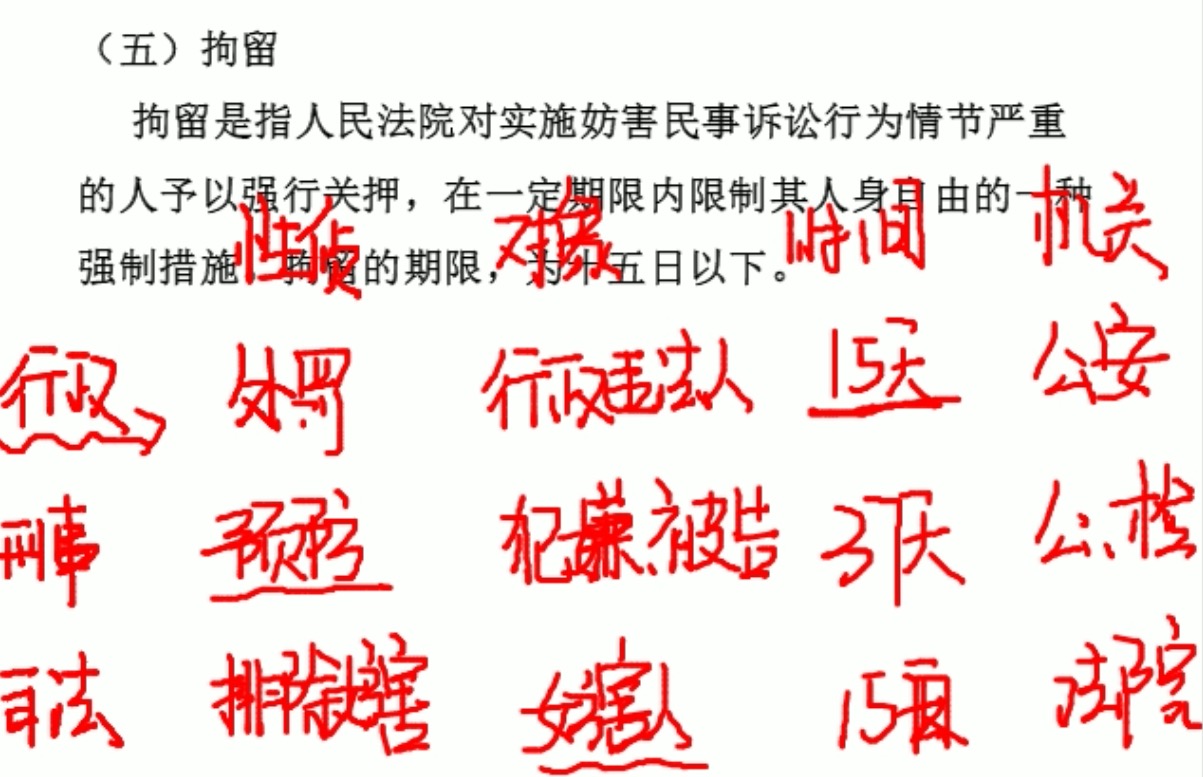 （五）拘留
拘留是指人民法院对实施妨害民事诉讼行为情节严重
的人予以强行关押，在一定期限内限制其人身自由的一种
强制措施，拘留的期限，为十五日以下。
性质 对象 时间 机关
行政 处罚 行政违法人 15天 公安
刑事 预防 犯嫌、被告 37天 公、检
司法 排除妨害 妨害人 15 法院